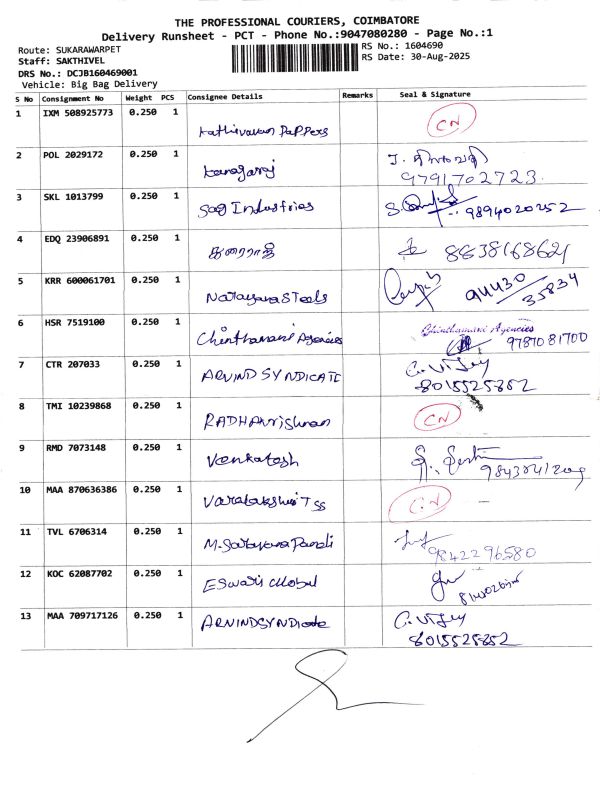 THE PROFESSIONAL COURIERS, COIMBATORE
Delivery Runsheet - PCT - Phone No.:9047080280 - Page No.:1
Route: SUKARAWARPET
RS No.: 1604690
Staff: SAKTHIVEL
RS Date: 30-Aug-2025
DRS No.: DCJB160469001
Vehicle: Big Bag Delivery
S No Consignment No Weight PCS Consignee Details Remarks Seal & Signature
1 IXM 508925773 0.250 1 Kathiravan Pappers CN
2 POL 2029172 0.250 1 Kanagaraj 9791702723
3 SKL 1013799 0.250 1 Sag Industries 9894020252
4 EDQ 23906891 0.250 1 துரைராஜ் 8838168621
5 KRR 600061701 0.250 1 Narayana Steels 94430 35834
6 HSR 7519100 0.250 1 Chinthamani Agencies Chinthamani Agencies 9787081700
7 CTR 207033 0.250 1 ARVIND SYNDICATE C. Vijay 8015525852
8 TMI 10239868 0.250 1 RADHAKrishnan CN
9 RMD 7073148 0.250 1 Venkatesh
10 MAA 870636386 0.250 1 Varalakshmi TSS CN
11 TVL 6706314 0.250 1 M. Pandi 9842296580
12 KOC 62087702 0.250 1 Eswari Global
13 MAA 709717126 0.250 1 ARVIND SYNDicate C. Vijay 8015525852